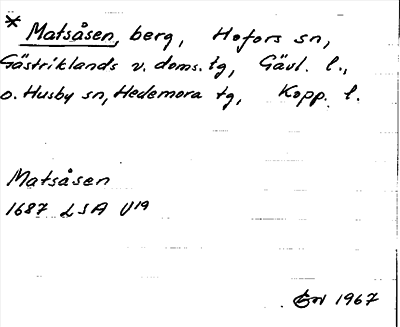 * Matsåsen, berg, Hofors sn,
Gästriklands v. doms. tg, Gävl. l.,
o. Husby sn, Hedemora tg, Kopp. l.
Matsåsen
1687 LSA U19
1967